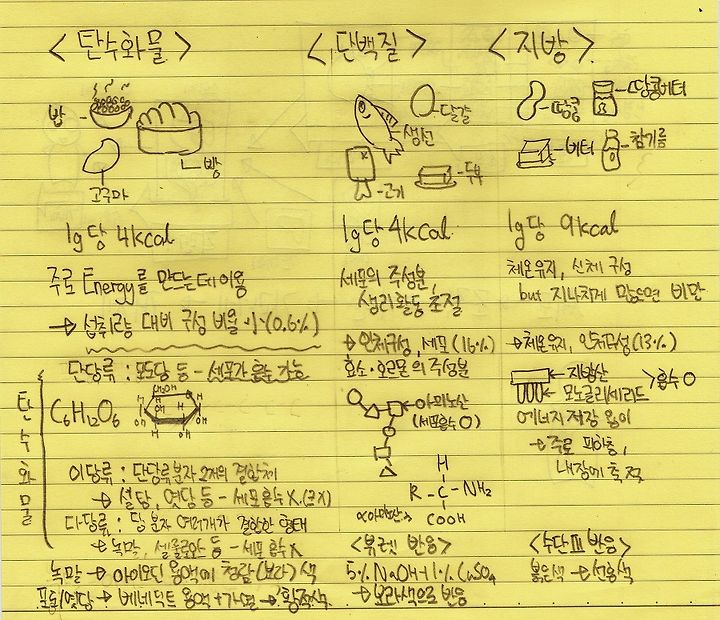 <탄수화물>
밥
빵
고구마
1g당 4kcal
주로 Energy를 만드는데 이용
→ 섭취량 대비 구성 비율 小(0.6%)
탄수화물
단당류 : 포도당 등 - 세포가 흡수 가능
C6H12O6
CH2OH
H
OH
이당류 : 단당류 분자 2개의 결합체
→ 설탕, 엿당 등 - 세포 흡수 X (크기)
다당류 : 당 분자 여러개가 결합한 형태
→ 녹말, 셀룰로오스 등 - 세포 흡수 X
녹말 → 아이오딘 용액에 청람(보라)색
포도/엿당 → 베네딕트 용액 + 가열 → 황적색
<단백질>
달걀
생선
고기
두부
1g당 4kcal
세포의 주성분,
생리활동 조절
→ 인체구성, 세포(16%)
효소·호르몬의 주성분
아미노산
(세포흡수 O)
H
R - C - NH2
COOH
<뷰렛 반응>
5% NaOH + 1% CuSO4
→ 보라색으로 반응
<지방>
땅콩
땅콩버터
버터
참기름
1g당 9kcal
체온유지, 신체 구성
but 지나치게 많으면 비만
→ 체온유지, 인체구성(13%)
지방산
모노글리세리드
흡수 O
에너지 저장 용이
→ 주로 피하층,
내장에 축적
<수단 III 반응>
붉은색 → 선홍색